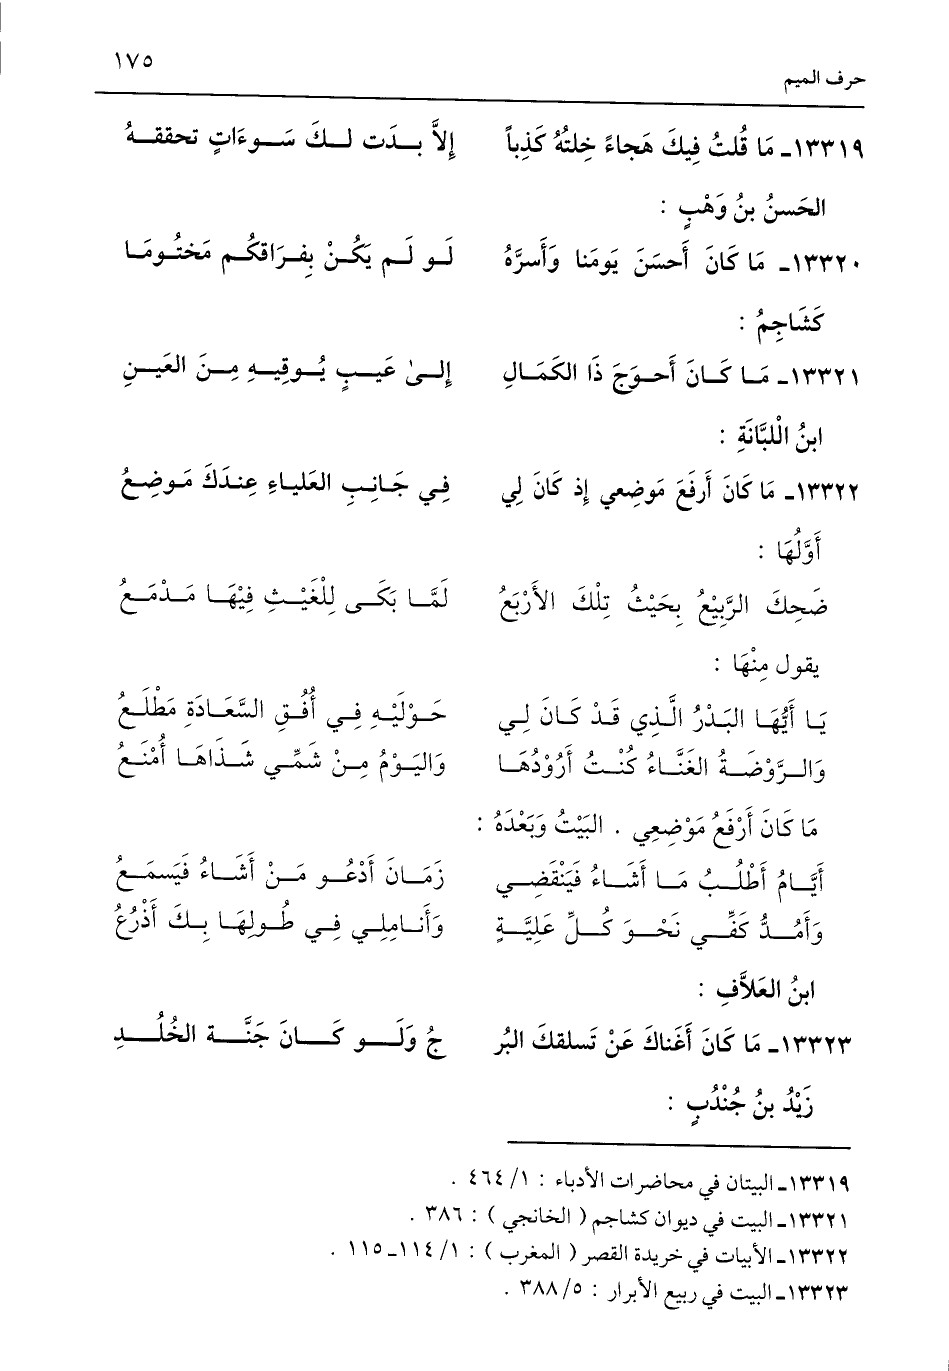 حرف الميم ١٧٥
١٣٣١٩ـ مَا قُلتُ فِيكَ هَجاءً خِلتُهُ كَذِباً إلاَّ بـدَت لـكَ سَـوءَاتٍ تحققـهُ
الحَسنُ بنُ وَهْبٍ :
١٣٣٢٠ـ مَا كَانَ أَحسَنَ يَومَنا وَأَسرَّهُ لَـو لَـم يَكُـنْ بِفـرَاقكُـم مَختُـومَـا
كَشَاجِمُ :
١٣٣٢١ـ مَـا كَـانَ أَحـوَجَ ذَا الكَمَـالِ إلـى عَيـبٍ يُـوقِيـهِ مِـنَ العَيـنِ
ابنُ الْلبَّانَةِ :
١٣٣٢٢ـ مَا كَانَ أَرفَعَ مَوضِعي إذ كَانَ لِي فِي جَانِبِ العَلياءِ عِندَكَ مَوضِعُ
أَوَّلُهَا :
ضَحِكَ الرَّبِيْعُ بِحَيْثُ تِلْكَ الأَرْبَعُ لَمَّـا بَكَـى لِلْغَيْـثِ فِيْهَـا مَـدْمَـعُ
يقول مِنْهَا :
يَـا أَيُّهَـا البَـدْرُ الَّـذِي قَـدْ كَـانَ لِـي حَـوْلَيْـهِ فِـي أُفُـقِ السَّعَـادَةِ مَطْلَـعُ
وَالـرَّوْضَـةُ الغَنَّـاءُ كُنْـتُ أَرُوْدُهَـا وَاليَـوْمُ مِـنْ شَمِّـي شَـذَاهَـا أَمْنَـعُ
مَا كَانَ أَرْفَعُ مَوْضِعِي . البَيْتُ وَبَعْدَهُ :
أَيَّـامُ أَطْلُـبُ مَـا أَشَـاءُ فَيَنْقَضِـي زَمَـانَ أَدْعُـو مَـنْ أَشَـاءُ فَيَسمَـعُ
وَأَمُـدُّ كَفِّـي نَحْـوَ كُـلِّ عَلِيَّـةٍ وَأَنـامِلِـي فِـي طُـولِهَـا بِـكَ أَذْرُعُ
ابنُ العَلاَّفِ :
١٣٣٢٣ـ مَا كَانَ أَغنَاكَ عَنْ تَسلقكَ البُر جُ وَلَـو كَـانَ جَنَّـة الخُلـدِ
زَيْدُ بنُ جُنْدُبٍ :
١٣٣١٩ـ البيتان في محاضرات الأدباء : ١/ ٤٦٤ .
١٣٣٢١ـ البيت في ديوان كشاجم ( الخانجي ) : ٣٨٦ .
١٣٣٢٢ـ الأبيات في خريدة القصر ( المغرب ) : ١/ ١١٤ـ١١٥ .
١٣٣٢٣ـ البيت في ربيع الأبرار : ٥/ ٣٨٨ .